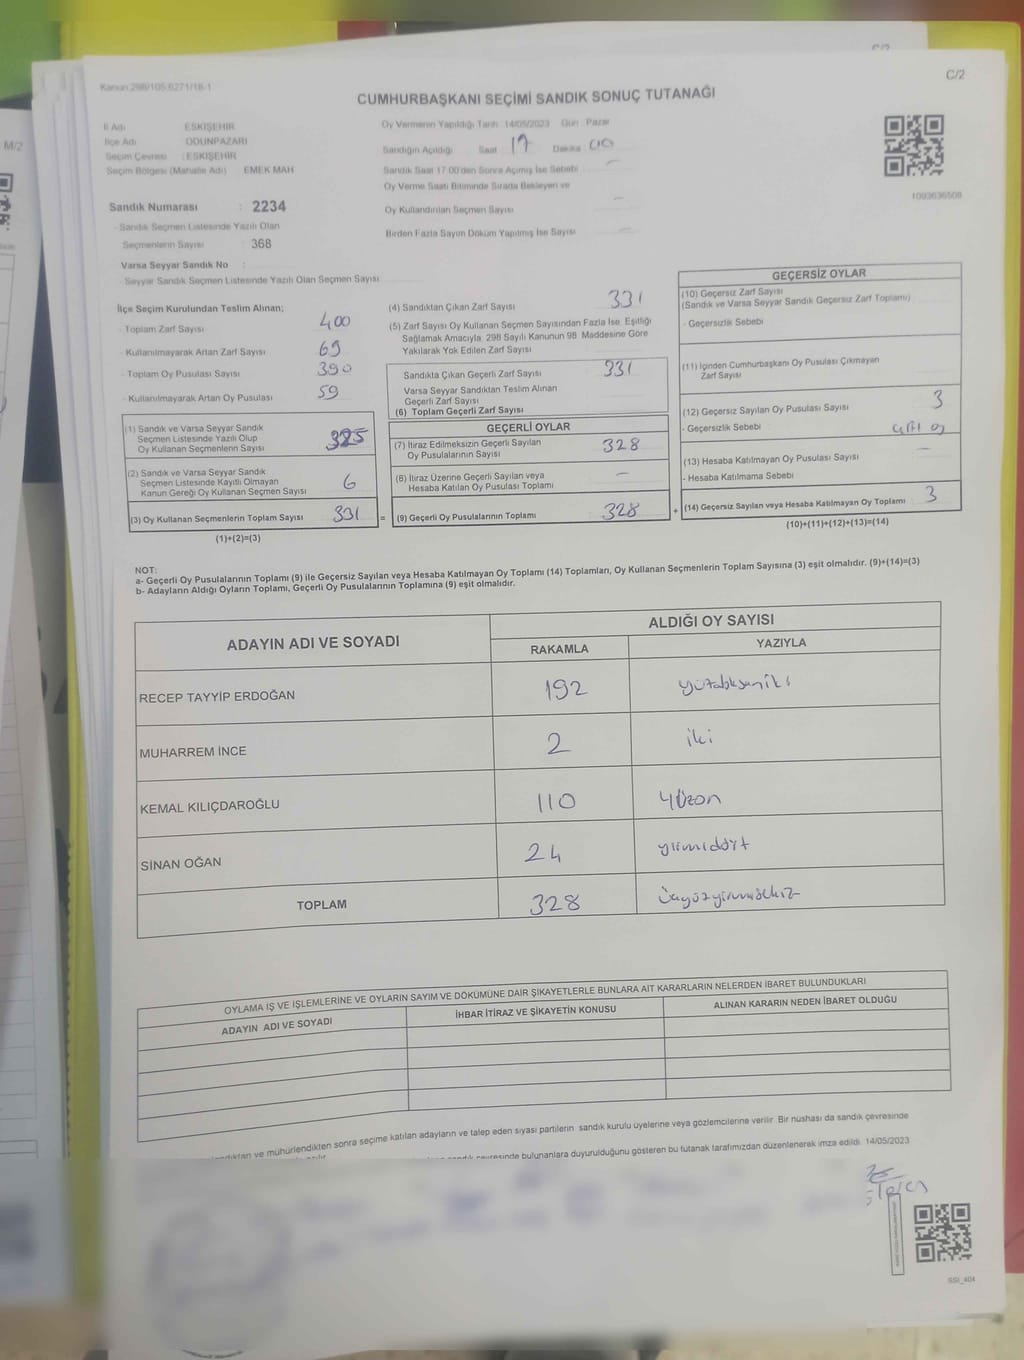 C/2
M/2
Kanun:298/105,6271/18-1
C/2
CUMHURBAŞKANI SEÇİMİ SANDIK SONUÇ TUTANAĞI
İl Adı ESKİŞEHİR
İlçe Adı ODUNPAZARI
Seçim Çevresi : ESKİŞEHİR
Seçim Bölgesi (Mahalle Adı) EMEK MAH
Sandık Numarası : 2234
- Sandık Seçmen Listesinde Yazılı Olan
Seçmenlerin Sayısı : 368
Varsa Seyyar Sandık No :
- Seyyar Sandık Seçmen Listesinde Yazılı Olan Seçmen Sayısı
Oy Vermenin Yapıldığı Tarih 14/05/2023 Gün Pazar
Sandığın Açıldığı Saat 17 Dakika 00
Sandık Saat 17:00'den Sonra Açılmış İse Sebebi
Oy Verme Saati Bitiminde Sırada Bekleyen ve
Oy Kullandırılan Seçmen Sayısı -
Birden Fazla Sayım Döküm Yapılmış İse Sayısı
1093636508
İlçe Seçim Kurulundan Teslim Alınan;
- Toplam Zarf Sayısı 400
- Kullanılmayarak Artan Zarf Sayısı 69
- Toplam Oy Pusulası Sayısı 390
- Kullanılmayarak Artan Oy Pusulası 59
(1) Sandık ve Varsa Seyyar Sandık
Seçmen Listesinde Yazılı Olup
Oy Kullanan Seçmenlerin Sayısı 325
(2) Sandık ve Varsa Seyyar Sandık
Seçmen Listesinde Kayıtlı Olmayan
Kanun Gereği Oy Kullanan Seçmen Sayısı 6
(3) Oy Kullanan Seçmenlerin Toplam Sayısı 331
(1)+(2)=(3)
=
(4) Sandıktan Çıkan Zarf Sayısı 331
(5) Zarf Sayısı Oy Kullanan Seçmen Sayısından Fazla İse, Eşitliği
Sağlamak Amacıyla, 298 Sayılı Kanunun 98. Maddesine Göre
Yakılarak Yok Edilen Zarf Sayısı
Sandıkta Çıkan Geçerli Zarf Sayısı 331
Varsa Seyyar Sandıktan Teslim Alınan
Geçerli Zarf Sayısı
(6) Toplam Geçerli Zarf Sayısı
GEÇERLİ OYLAR
(7) İtiraz Edilmeksizin Geçerli Sayılan
Oy Pusulalarının Sayısı 328
(8) İtiraz Üzerine Geçerli Sayılan veya
Hesaba Katılan Oy Pusulası Toplamı -
(9) Geçerli Oy Pusulalarının Toplamı 328
+
GEÇERSİZ OYLAR
(10) Geçersiz Zarf Sayısı
(Sandık ve Varsa Seyyar Sandık Geçersiz Zarf Toplamı)
- Geçersizlik Sebebi
(11) İçinden Cumhurbaşkanı Oy Pusulası Çıkmayan
Zarf Sayısı
(12) Geçersiz Sayılan Oy Pusulası Sayısı 3
- Geçersizlik Sebebi
(13) Hesaba Katılmayan Oy Pusulası Sayısı -
- Hesaba Katılmama Sebebi
(14) Geçersiz Sayılan veya Hesaba Katılmayan Oy Toplamı 3
(10)+(11)+(12)+(13)=(14)
NOT:
a- Geçerli Oy Pusulalarının Toplamı (9) ile Geçersiz Sayılan veya Hesaba Katılmayan Oy Toplamı (14) Toplamları, Oy Kullanan Seçmenlerin Toplam Sayısına (3) eşit olmalıdır. (9)+(14)=(3)
b- Adayların Aldığı Oyların Toplamı, Geçerli Oy Pusulalarının Toplamına (9) eşit olmalıdır.
ADAYIN ADI VE SOYADI
ALDIĞI OY SAYISI
RAKAMLA YAZIYLA
RECEP TAYYİP ERDOĞAN 192 yüzdoksaniki
MUHARREM İNCE 2 iki
KEMAL KILIÇDAROĞLU 110 yüzon
SİNAN OĞAN 24 yirmidört
TOPLAM 328 üçyüzyirmisekiz
OYLAMA İŞ VE İŞLEMLERİNE VE OYLARIN SAYIM VE DÖKÜMÜNE DAİR ŞİKAYETLERLE BUNLARA AİT KARARLARIN NELERDEN İBARET BULUNDUKLARI
ADAYIN ADI VE SOYADI İHBAR İTİRAZ VE ŞİKAYETİN KONUSU ALINAN KARARIN NEDEN İBARET OLDUĞU
ve mühürlendikten sonra seçime katılan adayların ve talep eden siyasi partilerin sandık kurulu üyelerine veya gözlemcilerine verilir. Bir nüshası da sandık çevresinde
bulunanlara duyurulduğunu gösteren bu tutanak tarafımızdan düzenlenerek imza edildi. 14/05/2023
SSI_404